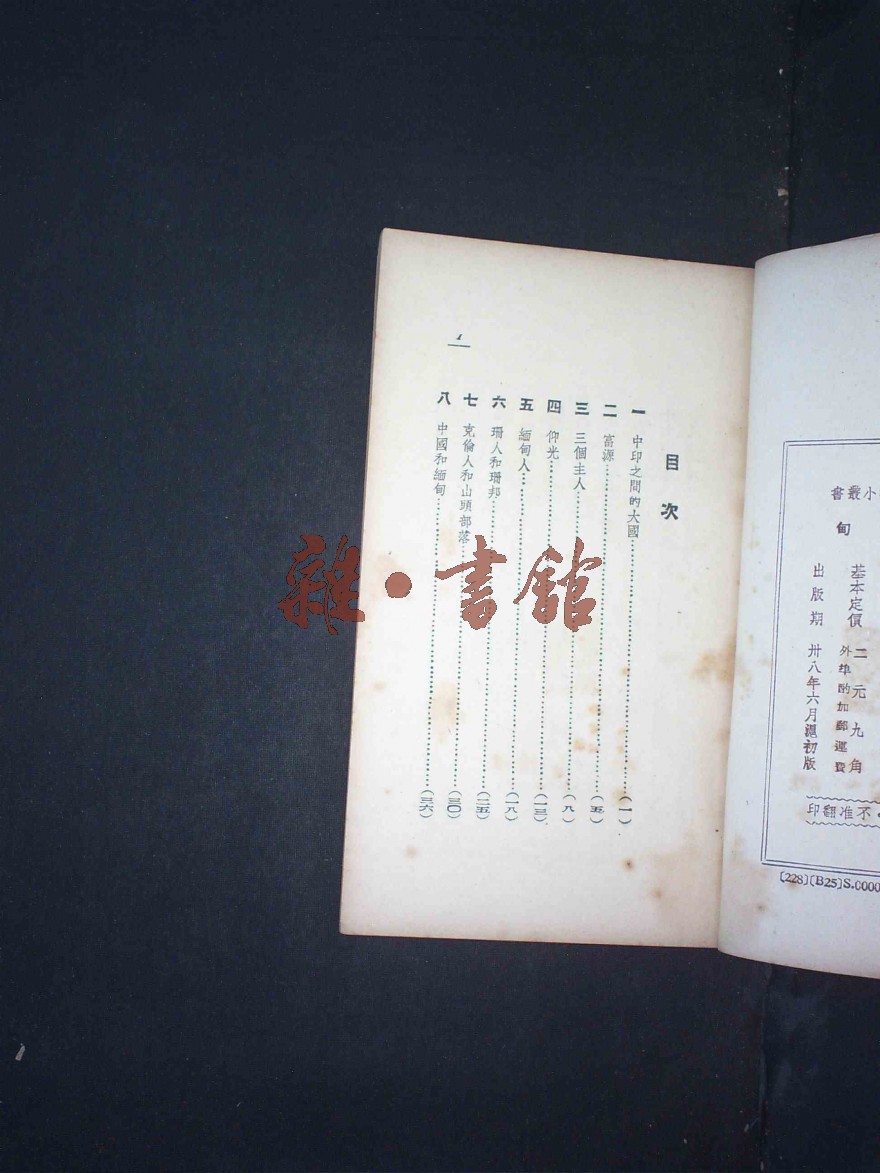 小叢書
甸
基本定價 二元九角
外埠酌加郵運費
出版期 卅八年六月滬初版
不准翻印
[228](B25)S.0000
目次
一 中印之間的大國……(一)
二 富源……(五)
三 三個主人……(八)
四 仰光……(一三)
五 緬甸人……(一八)
六 珊人和珊邦……(二五)
七 克倫人和山頭部落……(三〇)
八 中國和緬甸……(三六)
雜·書館